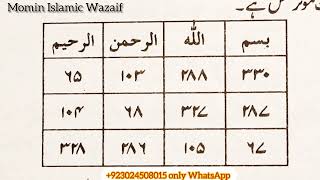 Momin Islamic Wazaif
ہے۔
بسم اللہ الرحمن الرحیم
۳۳۰ ۲۸۸ ۱۰۳ ۶۵
۲۸۷ ۳۲۷ ۶۸ ۱۰۴
۶۷ ۱۰۵ ۲۸۶ ۳۲۸
+923024508015 only WhatsApp